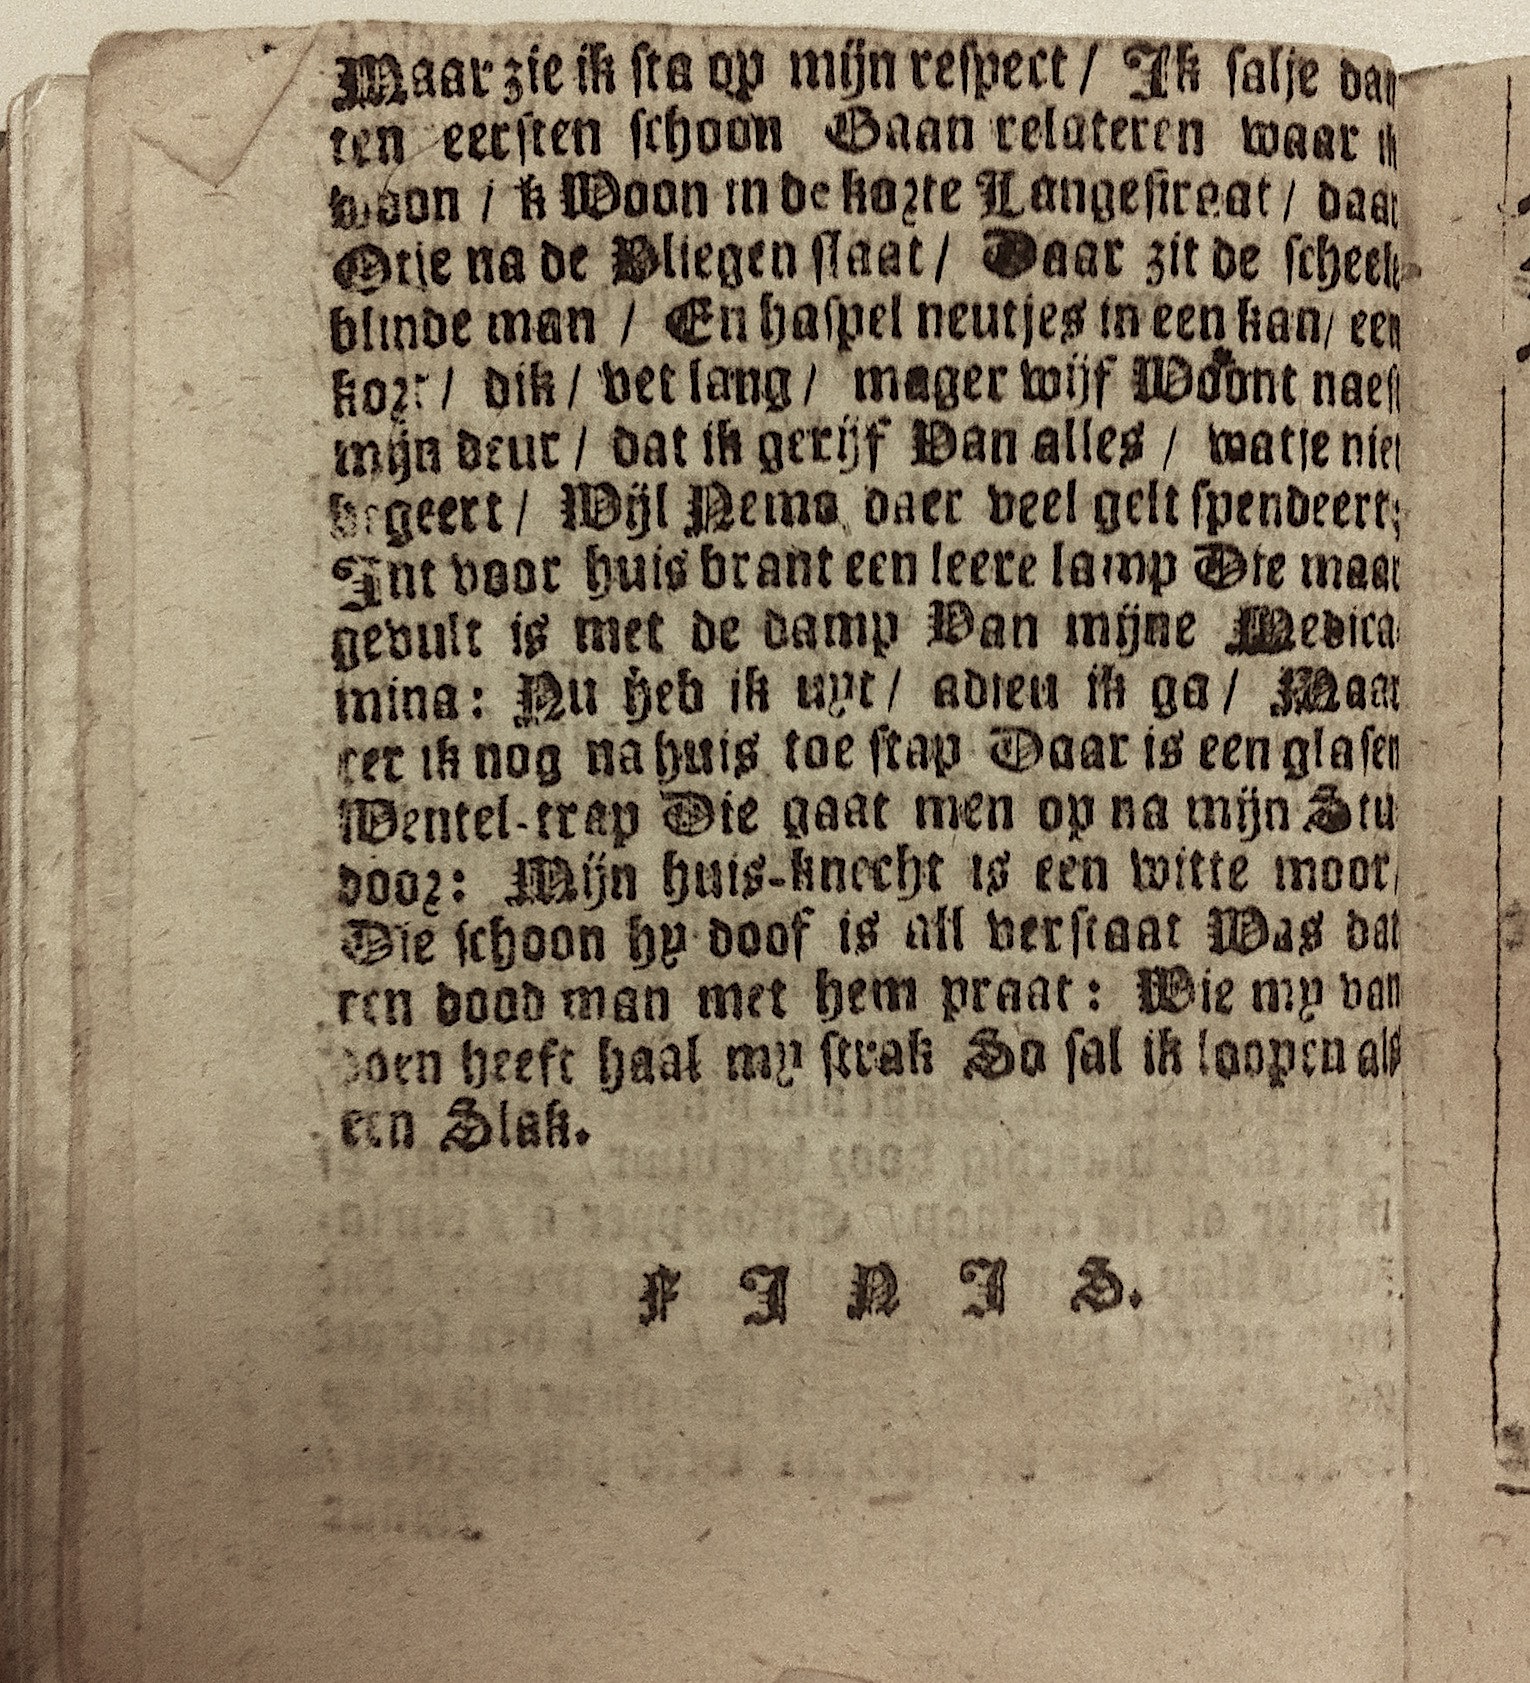 Maar zie ik sta op mijn respect / Ik salje dan
ten eersten schoon Gaan relateren waar ik
woon / k Woon in de korte Langestraat / daar
Otje na de Vliegen slaat / Daar zit de scheele
blinde man / En haspel neutjes in een kan / een
kort / dik / vet lang / mager wijf Woont naest
mijn deur / dat ik gerijf Van alles / watje niet
begeert / Wijl Nemo daer veel gelt spendeert;
Int voor huis brant een leere lamp Die maar
gevult is met de damp Van mijne Medica-
mina: Nu heb ik uyt / adieu ik ga / Maar
eer ik nog na huis toe stap Daar is een glasen
Wentel-trap Die gaat men op na mijn Stu-
door: Mijn huis-knecht is een witte moor /
Die schoon hy doof is all verstaat Was dat
een dood man met hem praat: Wie my van
doen heeft haal my strak So sal ik loopen als
een Slak.
F I N I S.